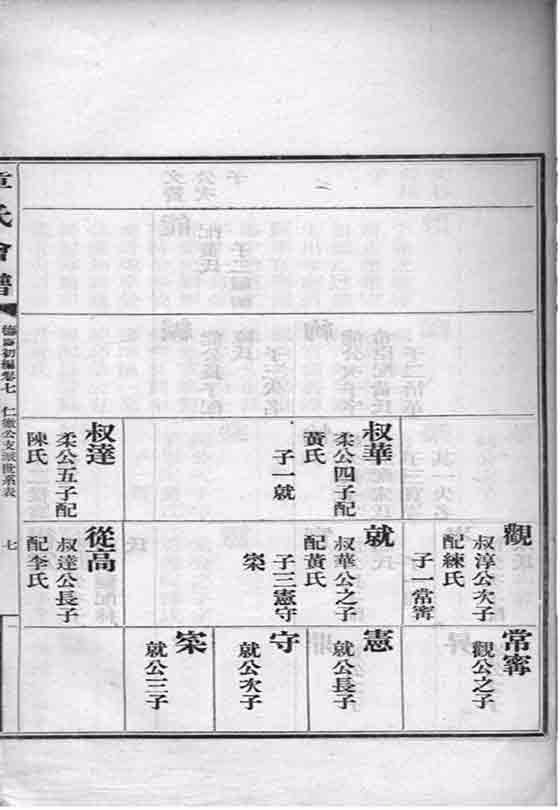 叔華
柔公四子配
黃氏
子一就
叔達
柔公五子配
陳氏
觀
叔淳公次子
配練氏
子一常寗
就
叔華公之子
配黃氏
子三憲守
寀
從高
叔達公長子
配李氏
常寗
觀公之子
憲
就公長子
守
就公次子
寀
就公三子
章氏會譜
德慶初編卷七
仁徹公支派世系表
七